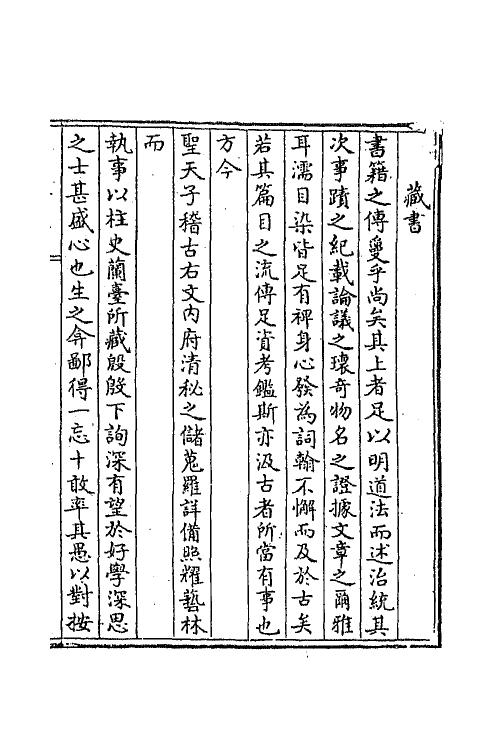 藏書
書籍之傳敻乎尚矣其上者足以明道法而述治統其
次事蹟之紀載論議之瓌奇物名之證據文章之爾雅
耳濡目染皆足有裨身心發為詞翰不懈而及於古矣
若其篇目之流傳足資考鑑斯亦汲古者所當有事也
方今
聖天子稽古右文内府清秘之儲蒐羅詳備照耀藝林
而
執事以柱史蘭臺所藏殷殷下詢深有望於好學深思
之士甚盛心也生之弇鄙得一忘十敢率其愚以對按